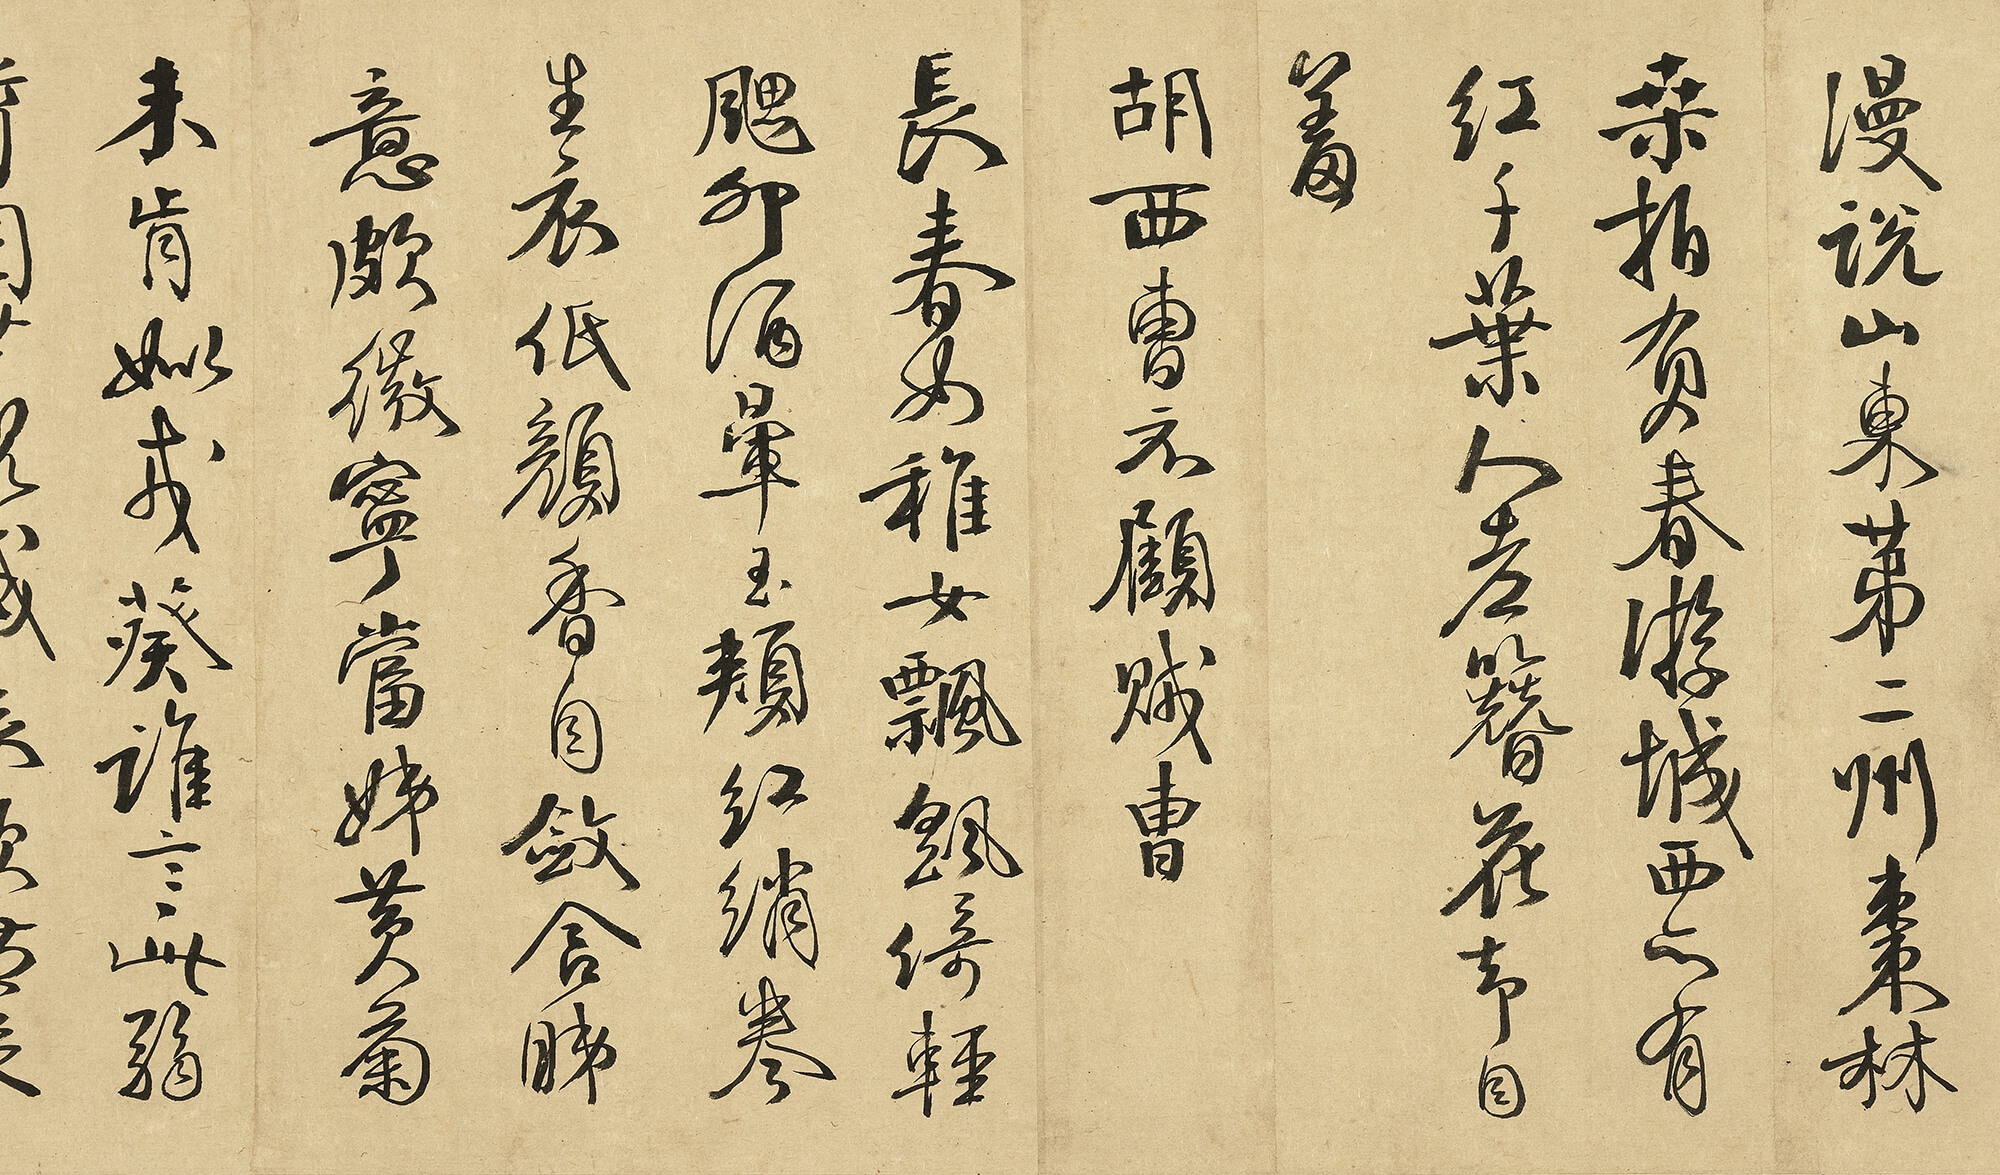 漫說山東第二州棗林
桑柏負春游城西亦有
紅千葉人老簪花却自
羞
胡西曹示顧賊曹
長春如稚女飄颻倚輕
颸卯酒暈玉頰紅綃卷
生衣低顏香自斂含睇
意頗微寧當娣黃菊
未肯姒戎葵誰言此弱